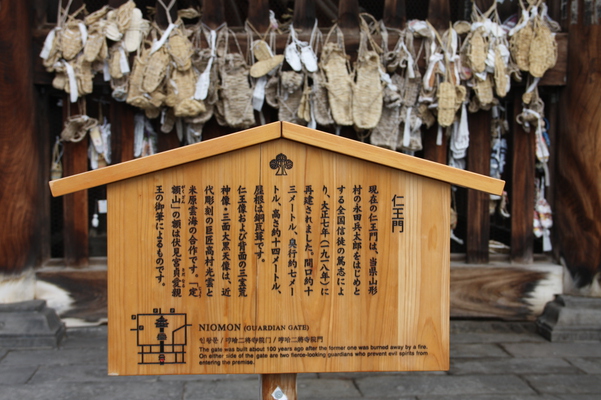 仁王門
現在の仁王門は、当県山形
村の永田兵太郎をはじめと
する全国信徒の篤志によ
り、大正七年（一九一八年）に
再建されました。間口約十
三メートル、奥行約七メー
トル、高さ約十四メートル、
屋根は銅瓦葺です。
仁王像および背面の三宝荒
神像・三面大黒天像は、近
代彫刻の巨匠高村光雲と
米原雲海の合作です。「定
額山」の額は伏見宮貞愛親
王の御筆によるものです。
NIOMON (GUARDIAN GATE)
인왕문 / 哼哈二將寺院門 / 哼哈二将寺院门
The gate was built about 100 years ago after the former one was burned away by a fire.
On either side of the gate are two fierce-looking guardians who prevent evil spirits from
entering the premise.